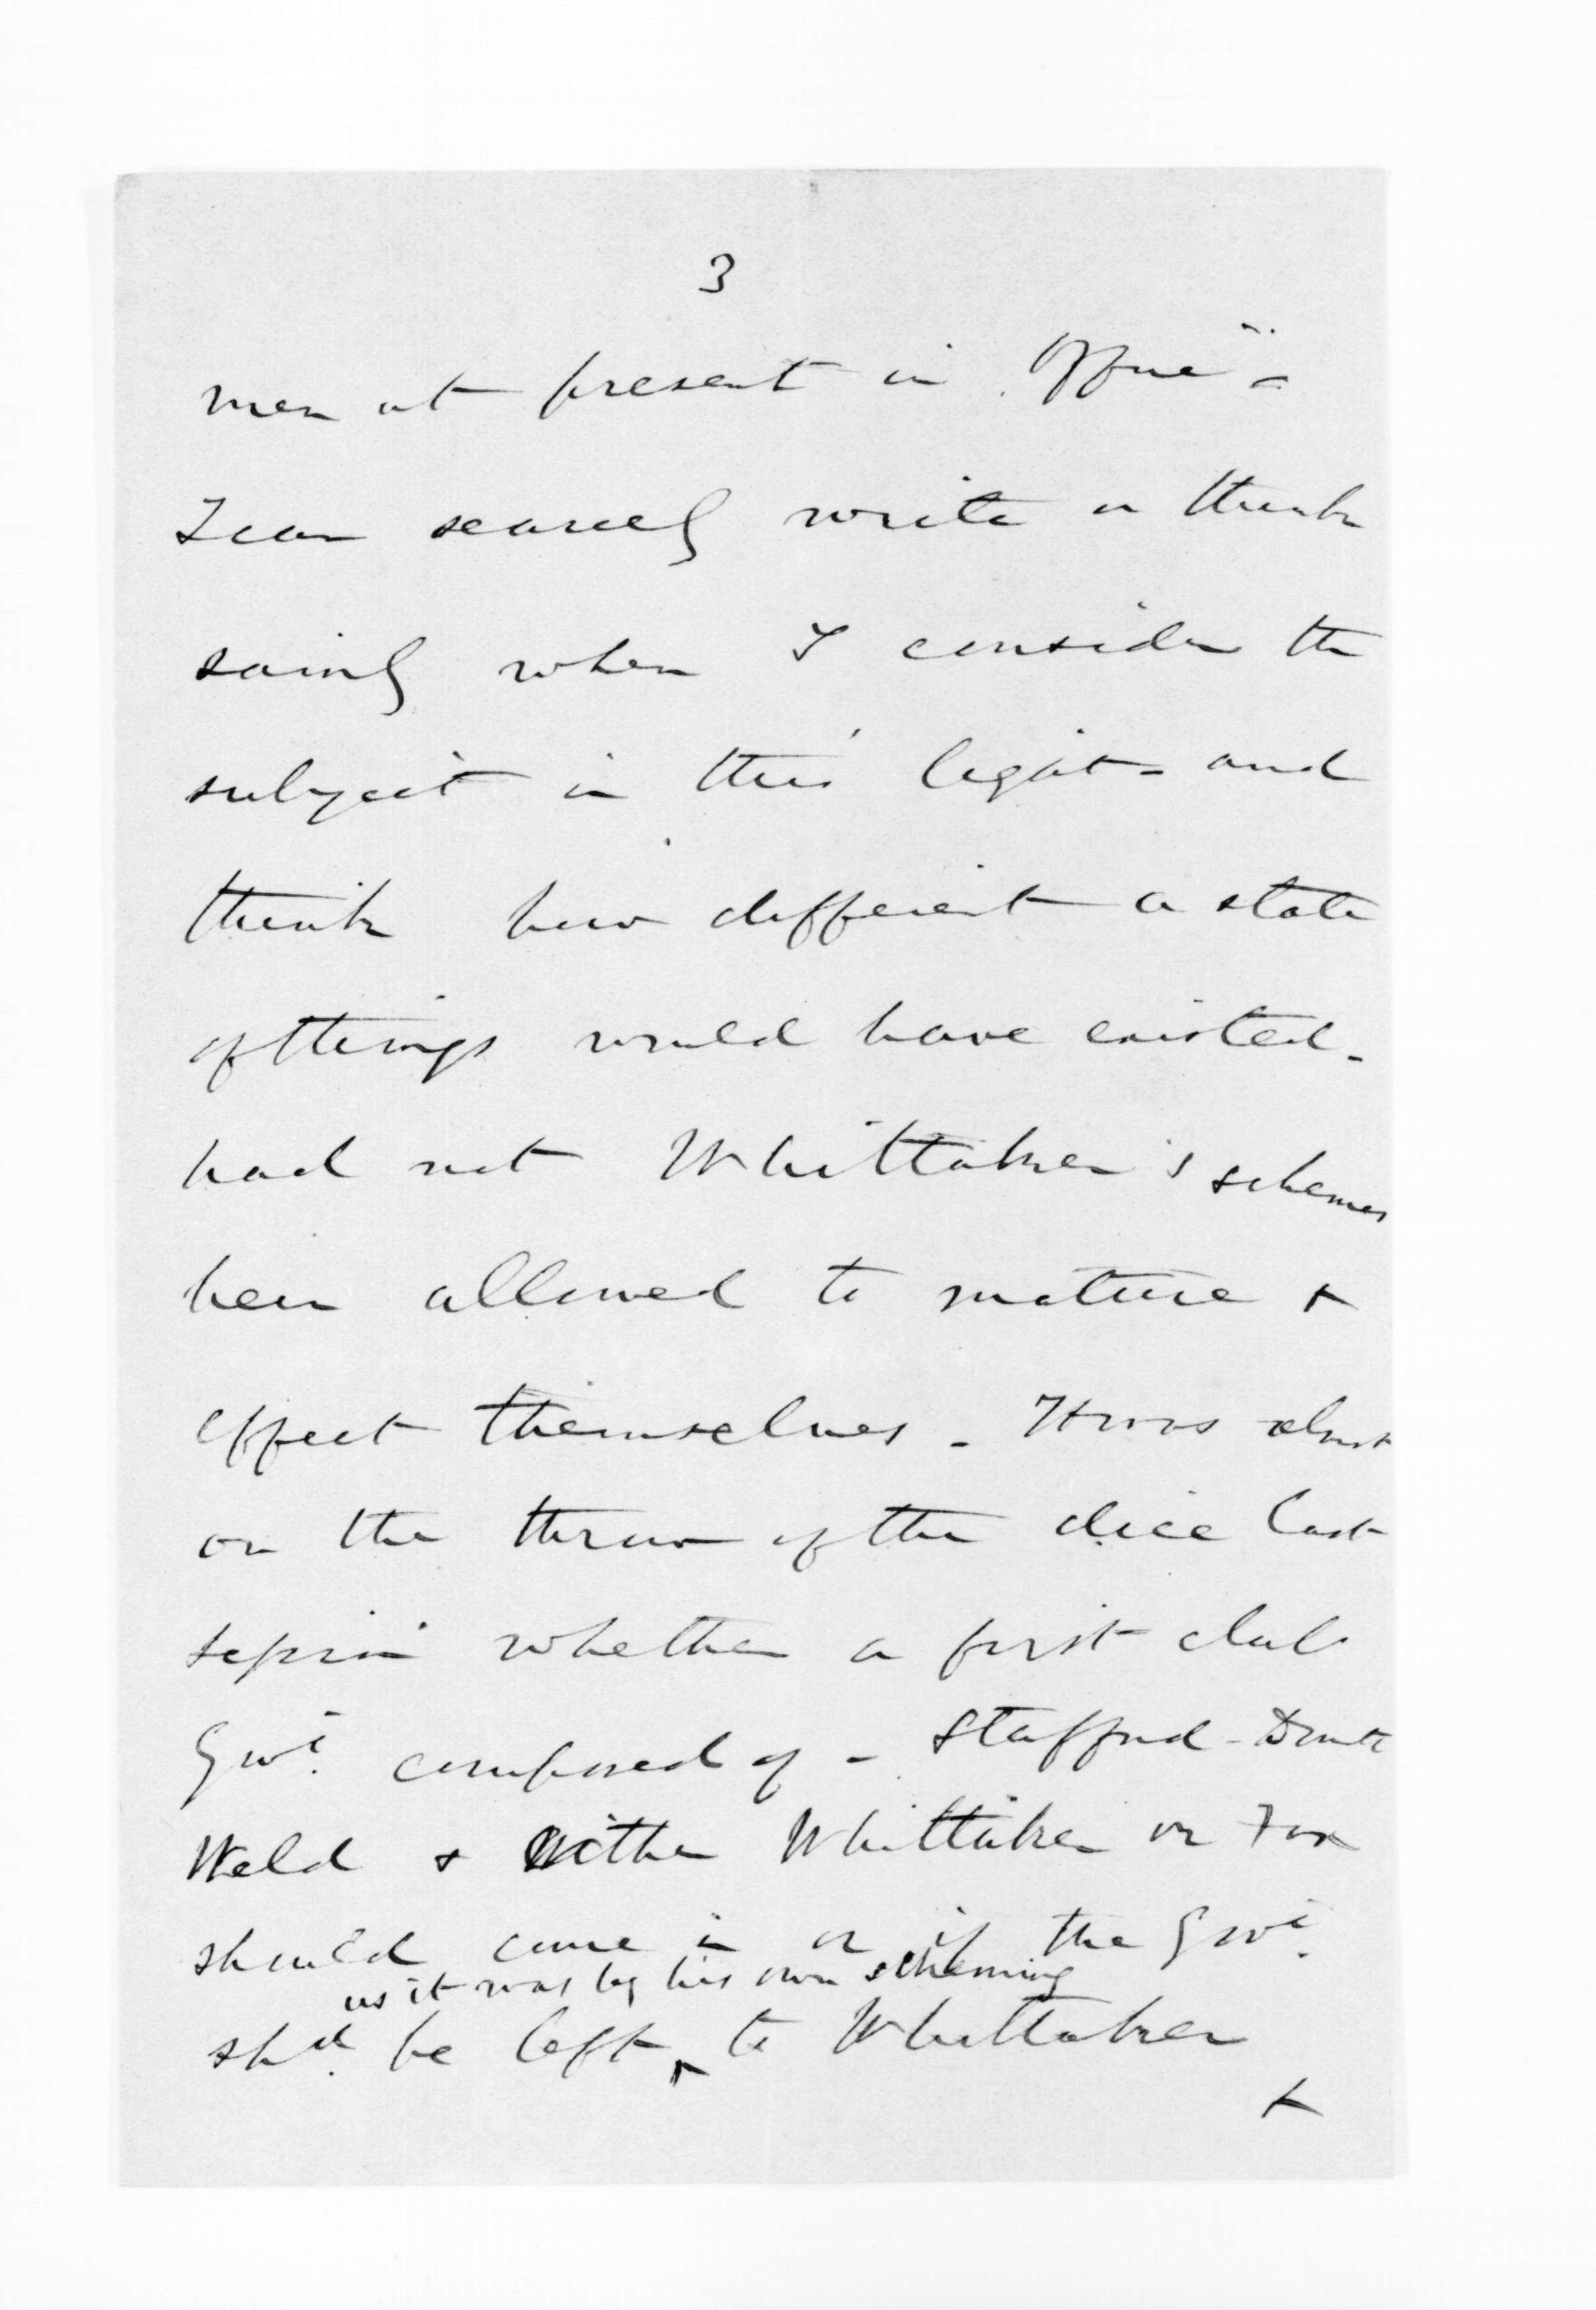 3
men at present in Office" -
I can scarcely write or think
sainly when I consider the
subject in this light - and
think how different a state
of things would have existed -
had not Whittaker's schemes
been allowed to mature &
effect themselves - It was almost
on the throw of the dice last
session whether a first club
Govt. composed of - Stafford -
Weld & either Whittaker or Fox
should come in or if the Govt.
as it was by his own scheming
shd. be left ^ to Whittaker
&